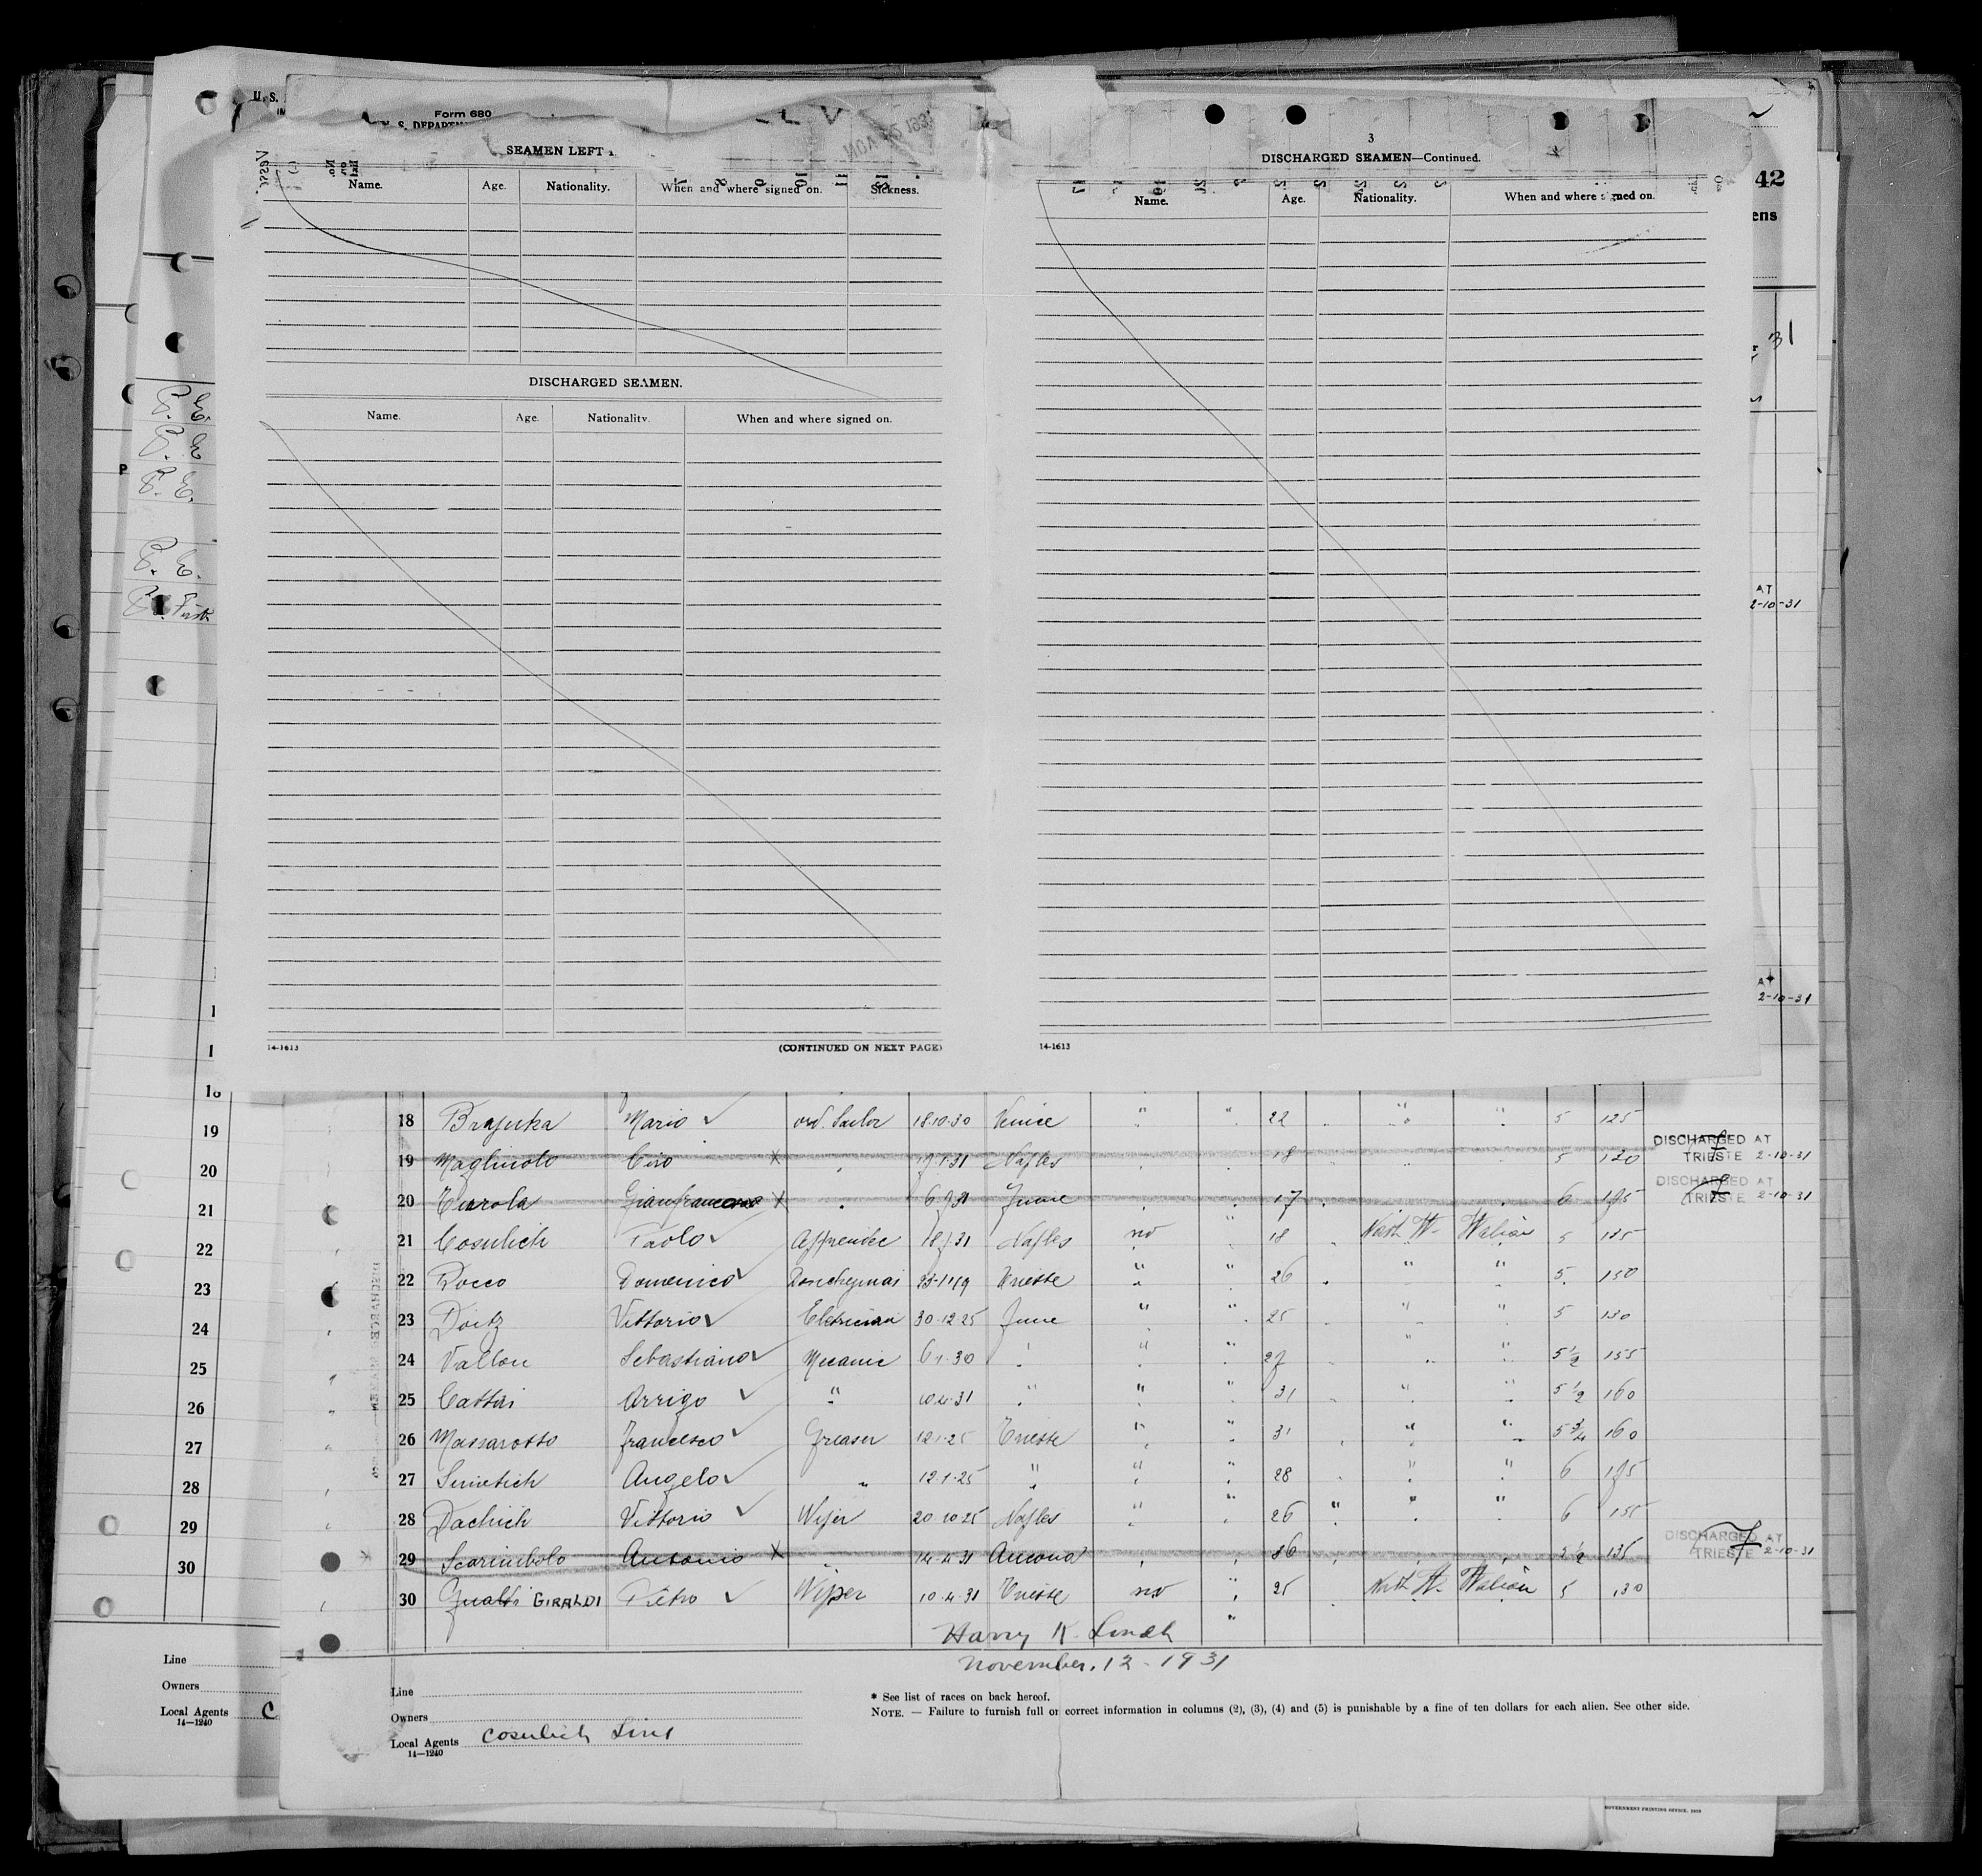 U. S.
Form 680
S. DEPARTM
SEAMEN LEFT
Name. Age. Nationality. When and where signed on. Sickness.
DISCHARGED SEAMEN.
Name. Age. Nationality. When and where signed on.
14-1613
(CONTINUED ON NEXT PAGE)
3
DISCHARGED SEAMEN—Continued.
Name. Age. Nationality. When and where signed on.
14-1613
42
ens
31
AT
2-10-31
AT
2-10-31
P. E.
P. E.
P. E.
P. E.
P
18
19
20
21
22
23
24
25
26
27
28
29
30
Line
Owners
Local Agents C
14—1240
18 Brajuka Mario ✓ ord. Sailor 18.10.30 Venice " " 22 " " 5 125
19 Magliuolo Ciro X 19.1.31 Naples 18 5 120 DISCHARGED AT TRIESTE 2-10-31
20 Gianfrancesco X 17 6 175 DISCHARGED AT TRIESTE 2-10-31
21 Cosulich Paolo ✓ Apprentice Naples no " 18 North It. Italian 5 135
22 Rocco Domenico ✓ Trieste " " 26 " " 5 150
23 Doitz Vittorio ✓ Eletrician 30-12 25 " " 25 " " 5 130
24 Vallon Sebastiano ✓ Mecanic 6 1.30 " " 27 " " 5 1/2 155
25 Cattai Arrigo ✓ " 10.4.31 " " " 31 " " 5 1/2 160
26 Massarotto Francesco ✓ Greaser 12.1.25 Trieste " " 31 " " 5 3/4 160
27 Simetich Angelo ✓ " 12.1.25 " " " 28 " " 6 175
28 Dachich Vittorio ✓ Wiper 20.10.25 Naples " " 26 " " " 6 155
29 Scarimbolo Antonio X " 14.4.31 Ancona 36 5 1/2 135 DISCHARGED AT TRIESTE 2-10-31
30 Gualti GIRALDI Pietro ✓ Wiper 10.4.31 Trieste no " 25 North It. Italian 5 130
Harry K. Lindh
November, 12 - 1931
Line
Owners
Local Agents Cosulich Line
14—1240
* See list of races on back hereof.
NOTE. — Failure to furnish full or correct information in columns (2), (3), (4) and (5) is punishable by a fine of ten dollars for each alien. See other side.
GOVERNMENT PRINTING OFFICE